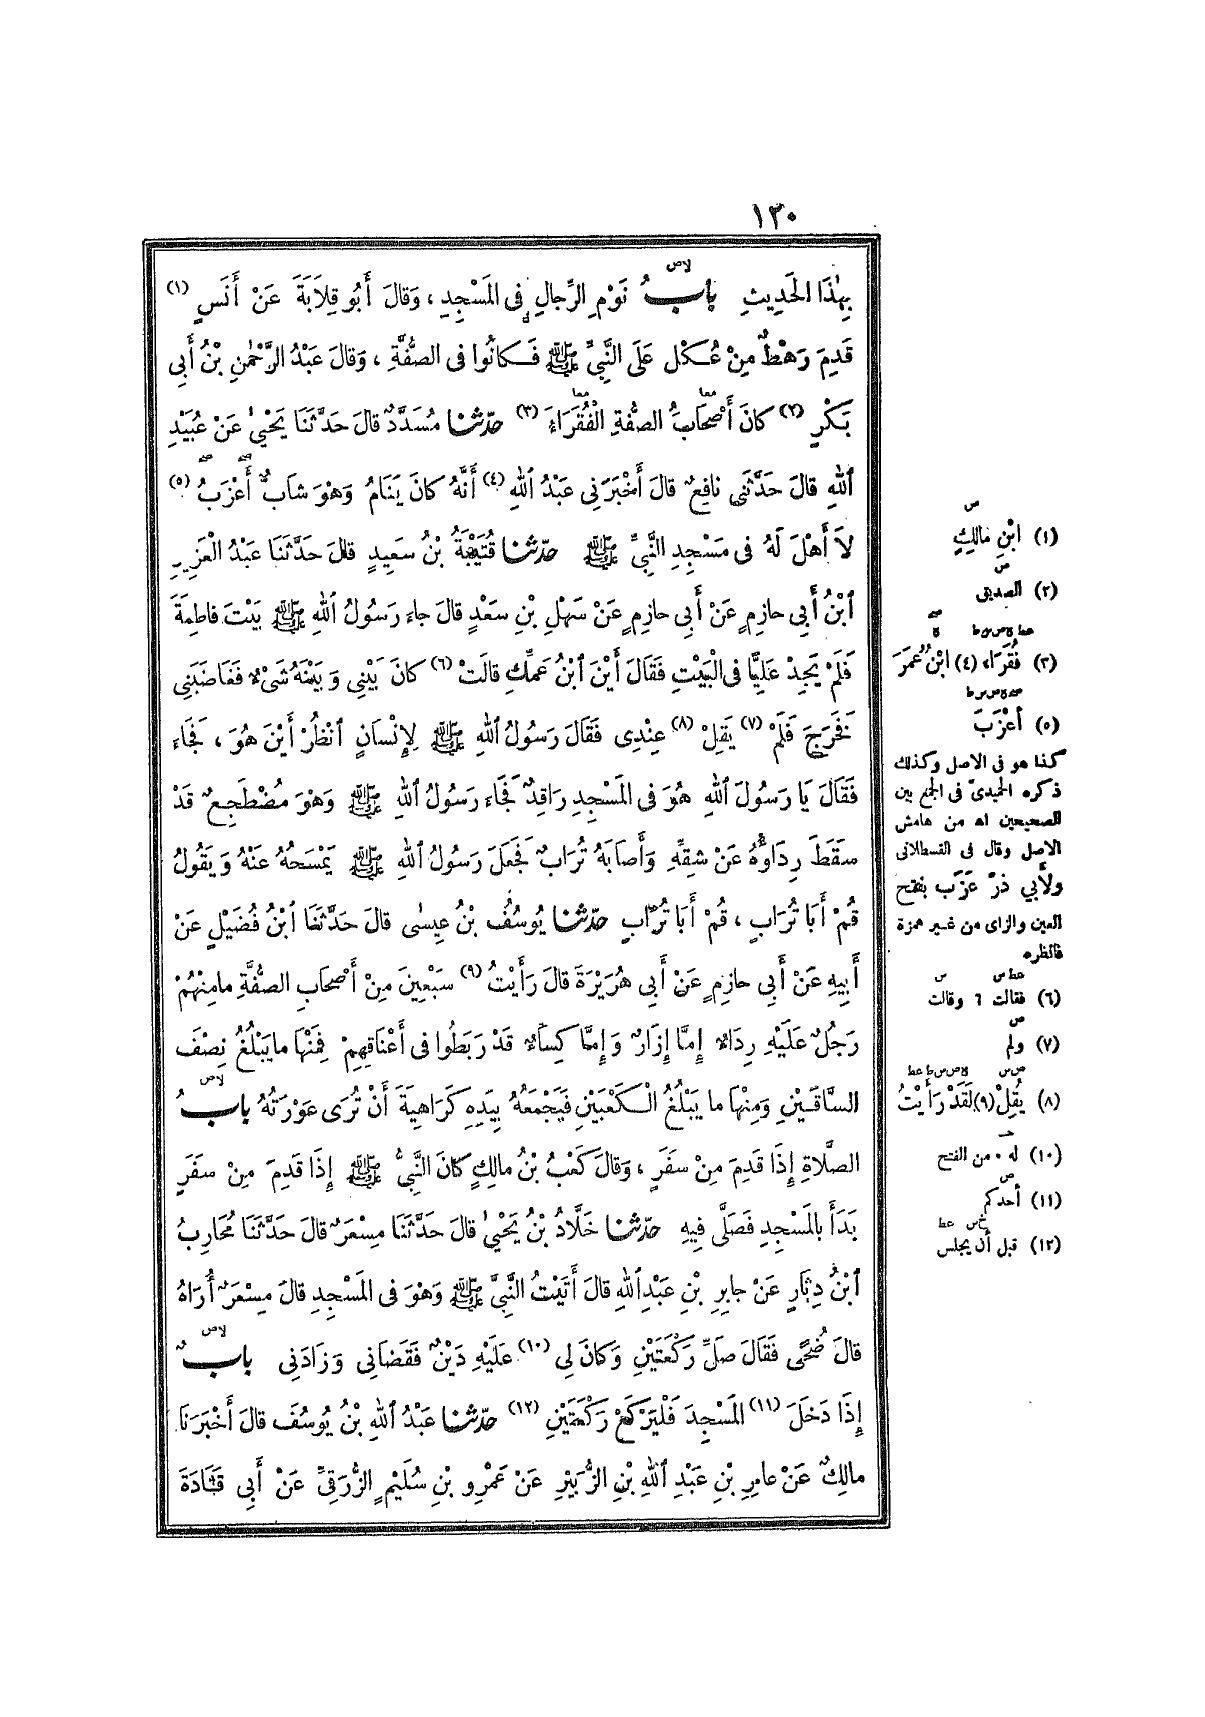 ١٣٠
بِهٰذَا الْحَدِيثِ بابُ نَوْمِ الرِّجالِ فِى الْمَسْجِدِ ، وَقالَ أَبُو قِلَابَةَ عَنْ أَنَسٍ (١)
قَدِمَ رَهْطٌ مِنْ عُكْلٍ عَلَى النَّبِيِّ ﷺ فَكَانُوا فى الصُّفَّةِ ، وَقالَ عَبْدُ الرَّحْمٰنِ بْنُ أَبِى
بَكْرٍ (٢) كانَ أَصْحَابُ الصُّفَّةِ الْفُقَرَاءَ (٣) حدّثنا مُسَدَّدٌ قالَ حَدَّثَنَا يَحْيٰى عَنْ عُبَيْدِ
اللهِ قالَ حَدَّثَنِى نافِعٌ قالَ أَخْبَرَنِى عَبْدُ اللهِ (٤) أَنَّهُ كانَ يَنَامُ وَهْوَ شابٌّ أَعْزَبُ (٥)
لاَ أَهْلَ لَهُ فى مَسْجِدِ النَّبِيِّ ﷺ حدّثنا قُتَيْبَةُ بْنُ سَعِيدٍ قالَ حَدَّثَنَا عَبْدُ الْعَزِيزِ
ابْنُ أَبِى حازِمٍ عَنْ أَبِى حازِمٍ عَنْ سَهْلِ بْنِ سَعْدٍ قالَ جاءَ رَسُولُ اللهِ ﷺ بَيْتَ فاطِمَةَ
فَلَمْ يَجِدْ عَلِيًّا فى الْبَيْتِ فَقَالَ أَيْنَ ابْنُ عَمِّكِ قالَتْ (٦) كانَ بَيْنِى وَبَيْنَهُ شَىْءٌ فَغَاضَبَنِى
فَخَرَجَ فَلَمْ (٧) يَقِلْ (٨) عِنْدِى فَقَالَ رَسُولُ اللهِ ﷺ لِإِنْسَانٍ انْظُرْ أَيْنَ هُوَ ، فَجَاءَ
فَقَالَ يَا رَسُولَ اللهِ هُوَ فى الْمَسْجِدِ رَاقِدٌ فَجَاءَ رَسُولُ اللهِ ﷺ وَهْوَ مُضْطَجِعٌ قَدْ
سَقَطَ رِدَاؤُهُ عَنْ شِقِّهِ وَأَصَابَهُ تُرَابٌ فَجَعَلَ رَسُولُ اللهِ ﷺ يَمْسَحُهُ عَنْهُ وَيَقُولُ
قُمْ أَبَا تُرَابٍ ، قُمْ أَبَا تُرَابٍ حدّثنا يُوسُفُ بْنُ عِيسٰى قالَ حَدَّثَنَا ابْنُ فُضَيْلٍ عَنْ
أَبِيهِ عَنْ أَبِى حازِمٍ عَنْ أَبِى هُرَيْرَةَ قالَ رَأَيْتُ (٩) سَبْعِينَ مِنْ أَصْحَابِ الصُّفَّةِ مامِنْهُمْ
رَجُلٌ عَلَيْهِ رِدَاءٌ إِمَّا إِزَارٌ وَإِمَّا كِسَاءٌ قَدْ رَبَطُوا فى أَعْنَاقِهِمْ فَمِنْهَا ما يَبْلُغُ نِصْفَ
السَّاقَيْنِ وَمِنْهَا ما يَبْلُغُ الْكَعْبَيْنِ فَيَجْمَعُهُ بِيَدِهِ كَرَاهِيَةَ أَنْ تُرَى عَوْرَتُهُ بابُ
الصَّلَاةِ إِذَا قَدِمَ مِنْ سَفَرٍ ، وَقالَ كَعْبُ بْنُ مالِكٍ كانَ النَّبِيُّ ﷺ إِذَا قَدِمَ مِنْ سَفَرٍ
بَدَأَ بِالْمَسْجِدِ فَصَلَّى فِيهِ حدّثنا خَلَّادُ بْنُ يَحْيٰى قالَ حَدَّثَنَا مِسْعَرٌ قالَ حَدَّثَنَا مُحَارِبُ
ابْنُ دِثَارٍ عَنْ جابِرِ بْنِ عَبْدِ اللهِ قالَ أَتَيْتُ النَّبِيَّ ﷺ وَهْوَ فى الْمَسْجِدِ قالَ مِسْعَرٌ أُرَاهُ
قالَ ضُحًى فَقَالَ صَلِّ رَكْعَتَيْنِ وَكانَ لِى (١٠) عَلَيْهِ دَيْنٌ فَقَضَانِى وَزَادَنِى بابٌ
إِذَا دَخَلَ (١١) الْمَسْجِدَ فَلْيَرْكَعْ رَكْعَتَيْنِ (١٢) حدّثنا عَبْدُ اللهِ بْنُ يُوسُفَ قالَ أَخْبَرَنَا
مالِكٌ عَنْ عامِرِ بْنِ عَبْدِ اللهِ بْنِ الزُّبَيْرِ عَنْ عَمْرِو بْنِ سُلَيْمٍ الزُّرَقِىِّ عَنْ أَبِى قَتَادَةَ
(١) ابْنِ مالِكٍ
(٢) الصديق
(٣) فُقَرَاءَ (٤) ابْنُ عُمَرَ
(٥) أَعْزَبَ
كذا هو فى الاصل وكذلك
ذكره الحميدىّ فى الجمع بين
الصحيحين اه من هامش
الاصل وقال فى القسطلانى
ولأبي ذرّ عَزَب بفتح
العين والزاى من غير همزة
فانظره
(٦) فقالت ٦ وقالت
(٧) ولم
(٨) يُقِلْ (٩) لَقَدْ رَأَيْتُ
(١٠) له . من الفتح
(١١) أحدكم
(١٢) قبل أن يجلس